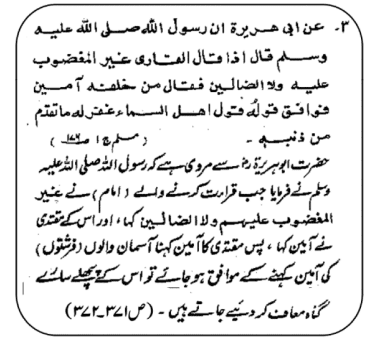 ۳۔ عن ابی ھریرۃ ان رسول اللہ صلی اللہ علیہ
وسلم قال اذا قال القاری غیر المغضوب
علیہ ولا الضالین فقال من خلفہ آمین
فوافق قولہ قول اھل السماء غفر لہ ما تقدم
من ذنبہ ۔ (مسلم ج۱ ص۱۷۶)
حضرت ابو ہریرۃ رضؓ سے مروی ہے کہ رسول اللہ صلی اللہ علیہ
وسلم نے فرمایا جب قراءت کرنے والے (امام) نے غیر
المغضوب علیہم ولا الضالین کہا، اور اس کے مقتدی
نے آمین کہا، پس مقتدی کا آمین کہنا آسمان والوں (فرشتوں)
کی آمین کہنے کے موافق ہو جائے تو اس کے پچھلے سارے
گناہ معاف کر دئیے جاتے ہیں ۔ (ص۳۷۱-۳۷۲)